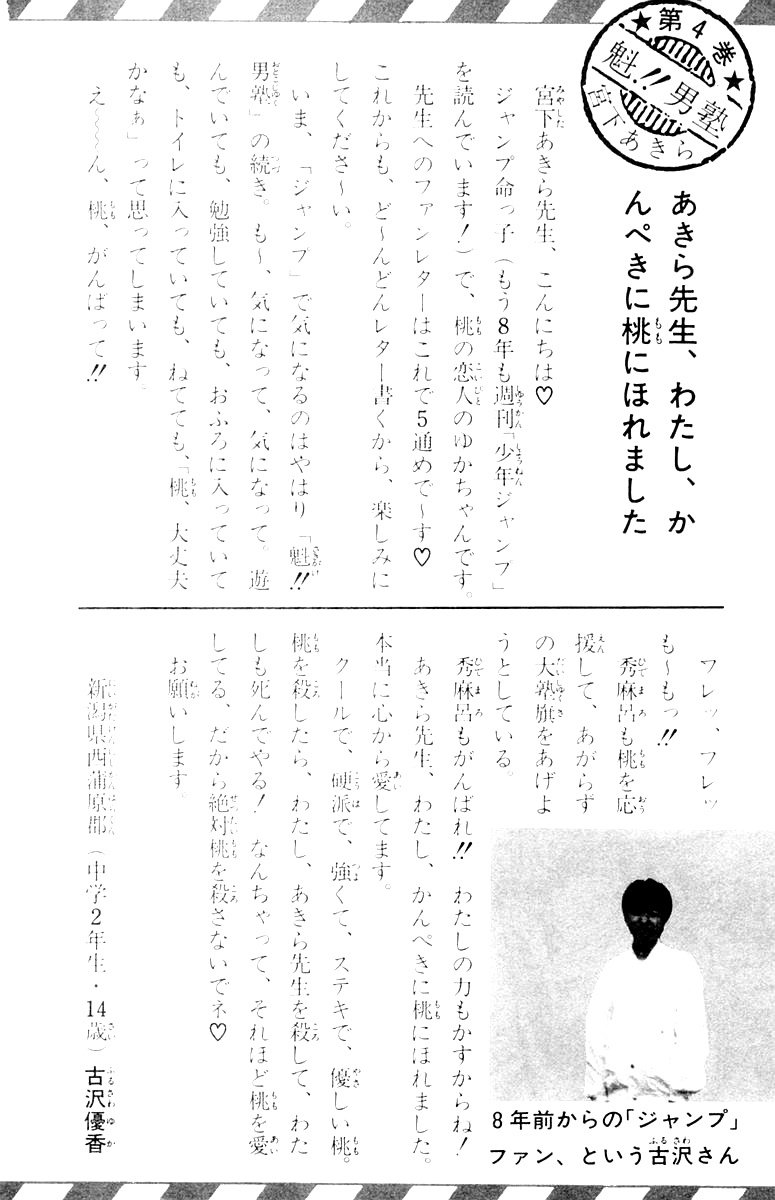 ★第4巻★
魁!!男塾
宮下あきら
あきら先生、わたし、か
んぺきに桃にほれました
宮下あきら先生、こんにちは♡
ジャンプ命っ子(もう8年も週刊「少年ジャンプ」
を読んでいます!)で、桃の恋人のゆかちゃんです。
先生へのファンレターはこれで5通めで〜す♡
これからも、ど〜んどんレター書くから、楽しみに
してくださ〜い。
いま、「ジャンプ」で気になるのはやはり「魁!!
男塾」の続き。も〜、気になって、気になって。遊
んでいても、勉強していても、おふろに入っていて
も、トイレに入っていても、ねてても、「桃、大丈夫
かなぁ」って思ってしまいます。
え〜〜ん、桃、がんばって!!
フレッ、フレッ
も〜もっ!!
秀麻呂も桃を応
援して、あがらず
の大塾旗をあげよ
うとしている。
秀麻呂もがんばれ!!わたしの力もかすからね!
あきら先生、わたし、かんぺきに桃にほれました。
本当に心から愛してます。
クールで、硬派で、強くて、ステキで、優しい桃。
桃を殺したら、わたし、あきら先生を殺して、わた
しも死んでやる!なんちゃって、それほど桃を愛
してる、だから絶対桃を殺さないでネ♡
お願いします。
新潟県西蒲原郡(中学2年生・14歳)古沢優香
8年前からの「ジャンプ」
ファン、という古沢さん